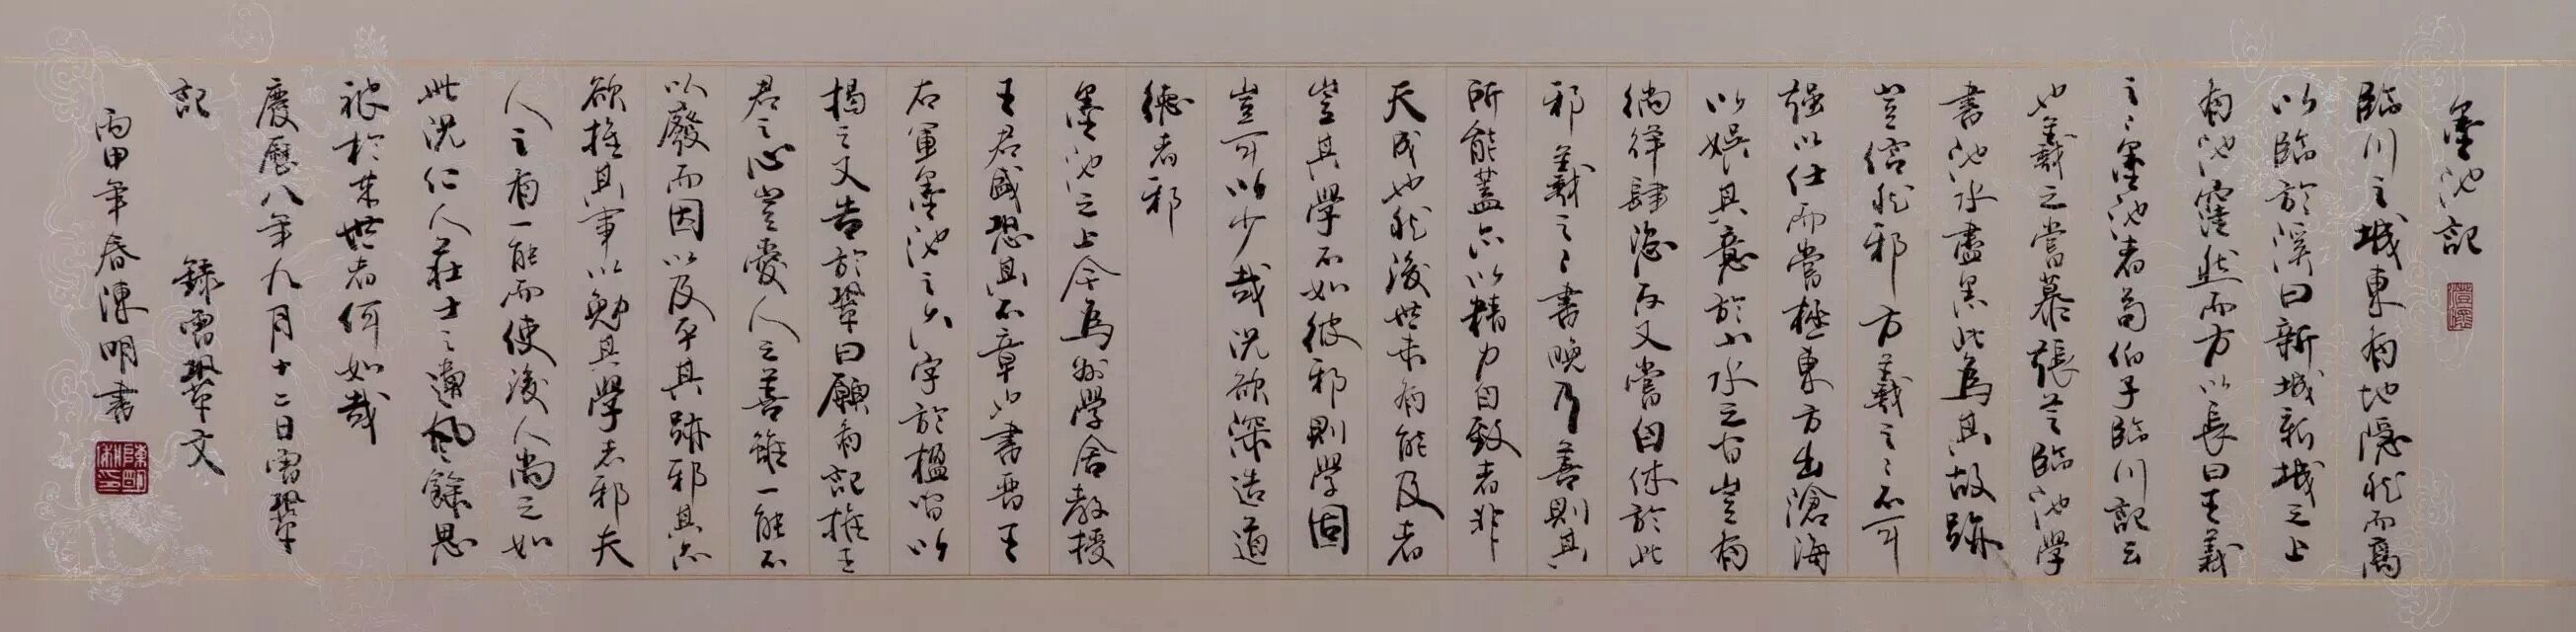 墨池記
臨川之城東有地隱然而高
以臨於溪曰新城新城之上
有池窪然而方以長曰王羲
之之墨池者荀伯子臨川記云
也羲之嘗慕張芝臨池學
書池水盡黑此為其故跡
豈信然邪方羲之之不可
強以仕而嘗極東方出滄海
以娛其意於山水之間豈有
徜徉肆恣而又嘗自休於此
邪羲之之書晚乃善則其
所能蓋亦以精力自致者非
天成也然後世未有能及者
豈其學不如彼邪則學固
豈可以少哉況欲深造道
德者邪
墨池之上今為州學舍教授
王君盛恐其不章也書晉王
右軍墨池之六字於楹間以
揭之又告於鞏曰願有記推王
君之心豈愛人之善雖一能不
以廢而因以及乎其跡邪其亦
欲推其事以勉其學者邪夫
人之有一能而使後人尚之如
此況仁人莊士之遺風餘思
被於來世者何如哉
慶曆八年九月十二日曾鞏
記 錄曾鞏文
丙申年春陳明書